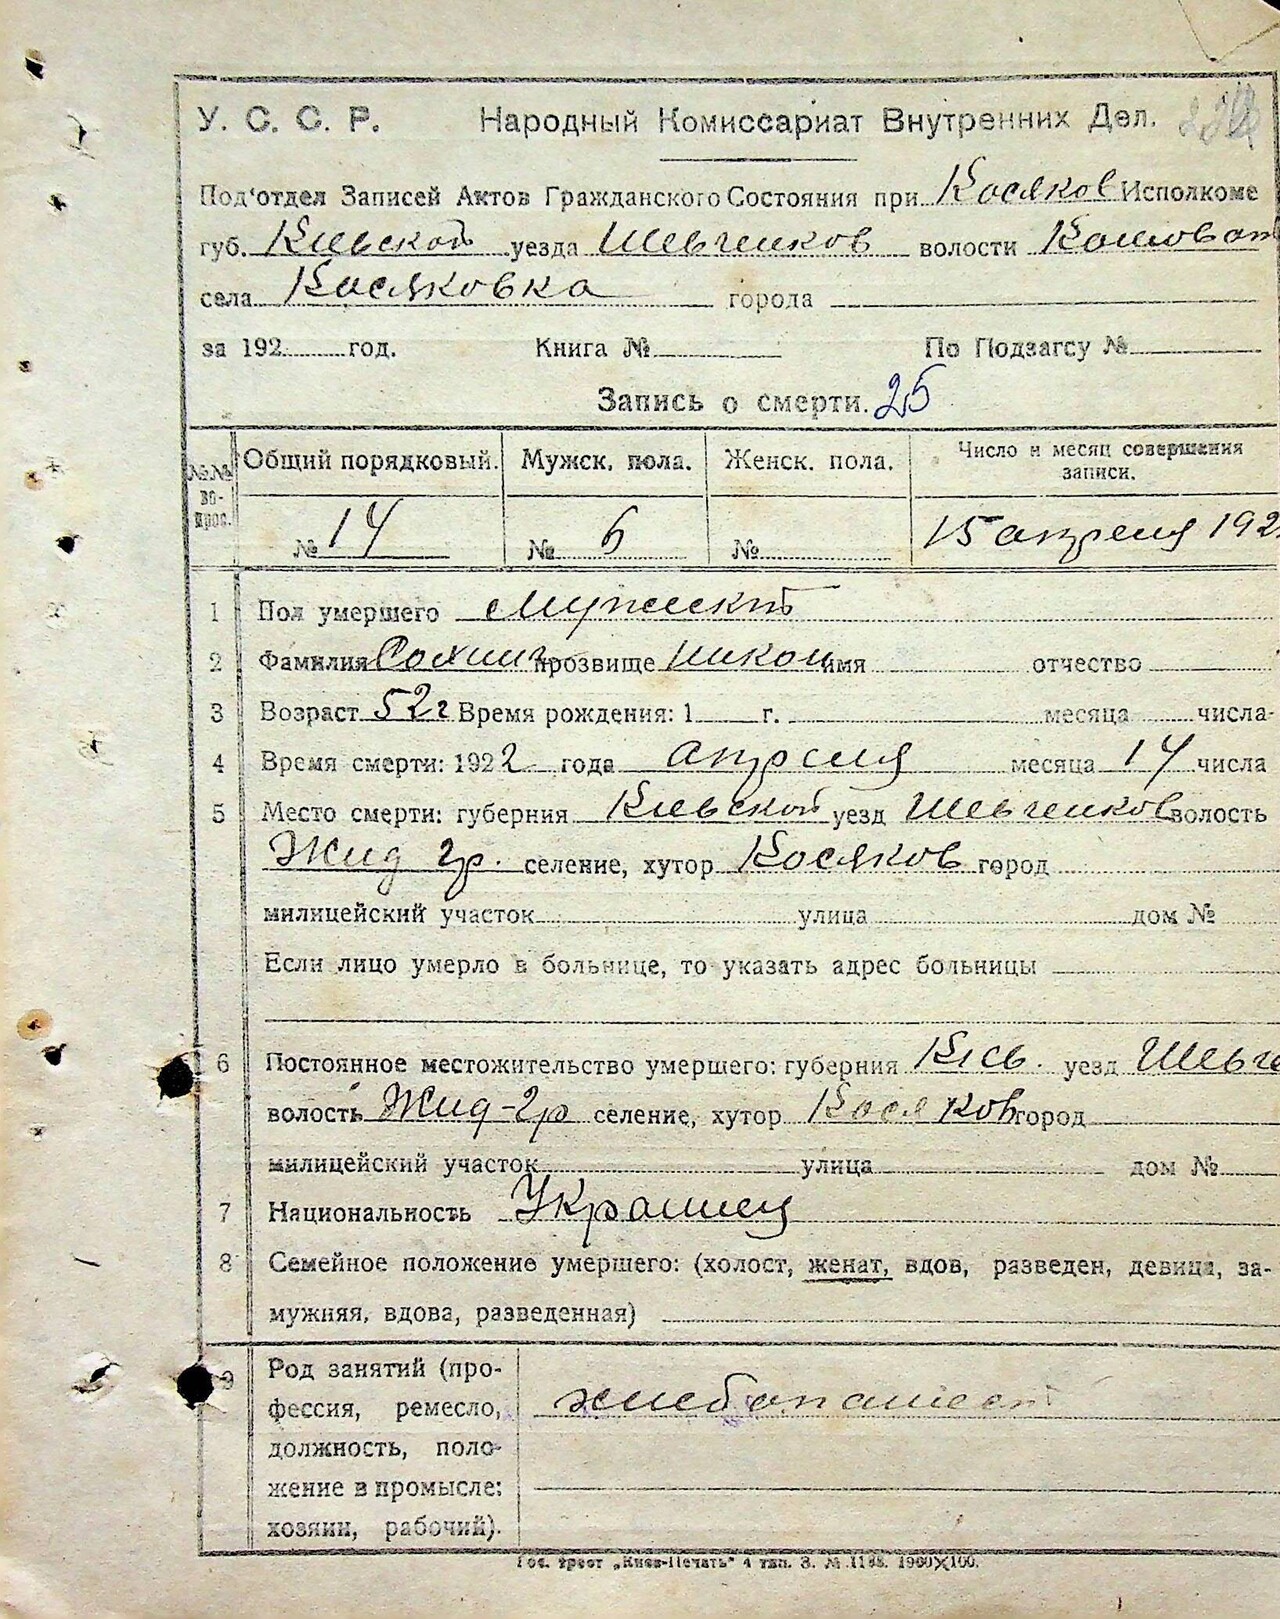 У. С. С. Р. Народный Комиссариат Внутренних Дел.
Под'отдел Записей Актов Гражданского Состояния при Косяков Исполкоме
губ. Киевской уезда Шевченков волости
села Косяковка города
за 192 год. Книга № По Подзагсу №
Запись о смерти. 25
№№ вопрос. Общий порядковый. Мужск. пола. Женск. пола. Число и месяц совершения записи.
№ 14 № 6 № 15 апреля 192
1 Пол умершего Мужской
2 Фамилия прозвище Никон имя отчество
3 Возраст 52 г Время рождения: 1 г. месяца числа
4 Время смерти: 1922 года апреля месяца 14 числа
5 Место смерти: губерния Киевской уезд Шевченков волость
Жид гр. селение, хутор Косяков город
милицейский участок улица дом №
Если лицо умерло в больнице, то указать адрес больницы
6 Постоянное местожительство умершего: губерния Киев. уезд Шевче
волость Жид-гр селение, хутор Косяков город
милицейский участок улица дом №
7 Национальность Украинец
8 Семейное положение умершего: (холост, женат, вдов, разведен, девица, за-
мужняя, вдова, разведенная)
9 Род занятий (про-
фессия, ремесло, хлебопашест
должность, поло-
жение в промысле:
хозяин, рабочий).
Гос. трест „Киев-Печать" 4 тип. З. № 1198. 1900×100.